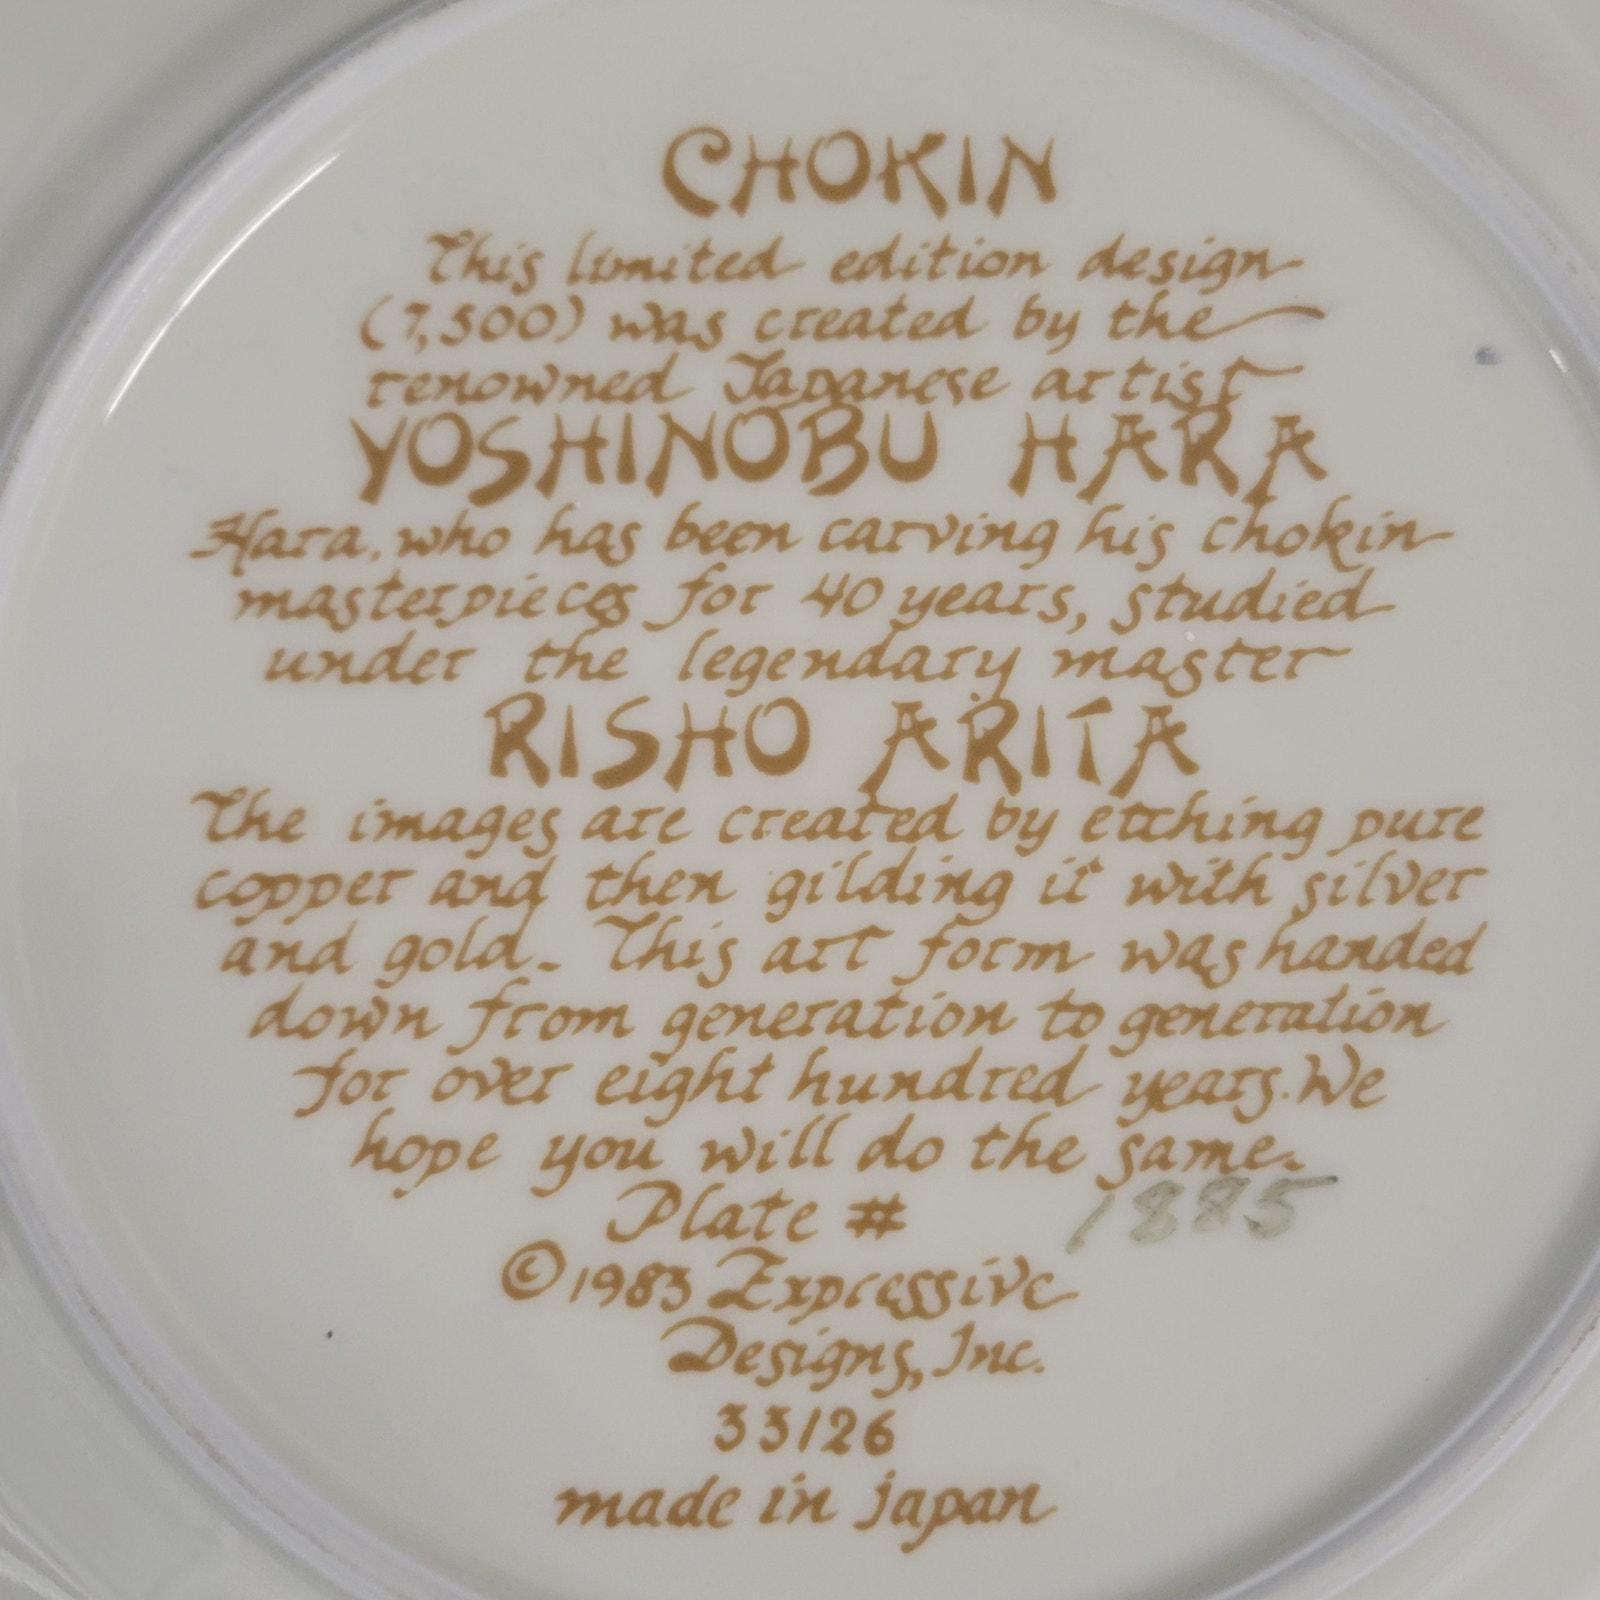 CHOKIN
This limited edition design
(7,500) was created by the
renowned Japanese artist
YOSHINOBU HARA
Hara, who has been carving his chokin
masterpieces for 40 years, studied
under the legendary master
RISHO ARITA
The images are created by etching pure
copper and then gilding it with silver
and gold. This art form was handed
down from generation to generation
for over eight hundred years. We
hope you will do the same.
Plate # 1885
©1983 Expressive
Designs, Inc.
33126
made in japan